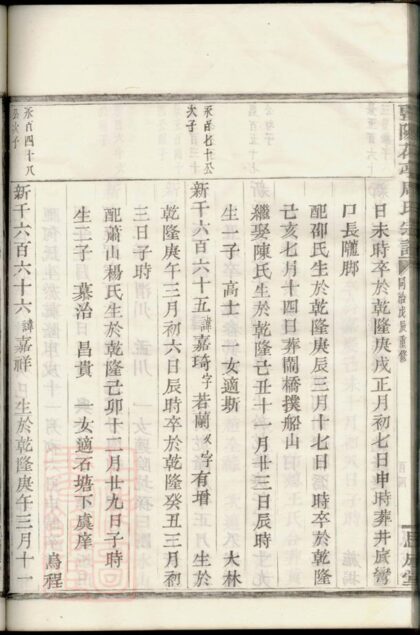 同治戊辰重修
日未時卒於乾隆庚戌正月初七日申時葬井底灣
口長隴脚
配邵氏生於乾隆庚辰三月十七日時卒於乾隆
己亥七月十四日葬闊橋撲船山
繼娶陳氏生於乾隆己丑十一月廿三日辰時
生一子 高士 一女適斯 大林
次子
新千六百六十五諱嘉琦字若蘭又字有增 生於
乾隆庚午三月初六日辰時卒於乾隆癸丑三月初
三日子時
配蕭山楊氏生於乾隆己卯十二月廿九日子時
生二子 慕治 昌貴 一女適石塘下虞庠
烏程
百四十八
次子
新千六百六十六諱嘉祥 生於乾隆庚午三月十一